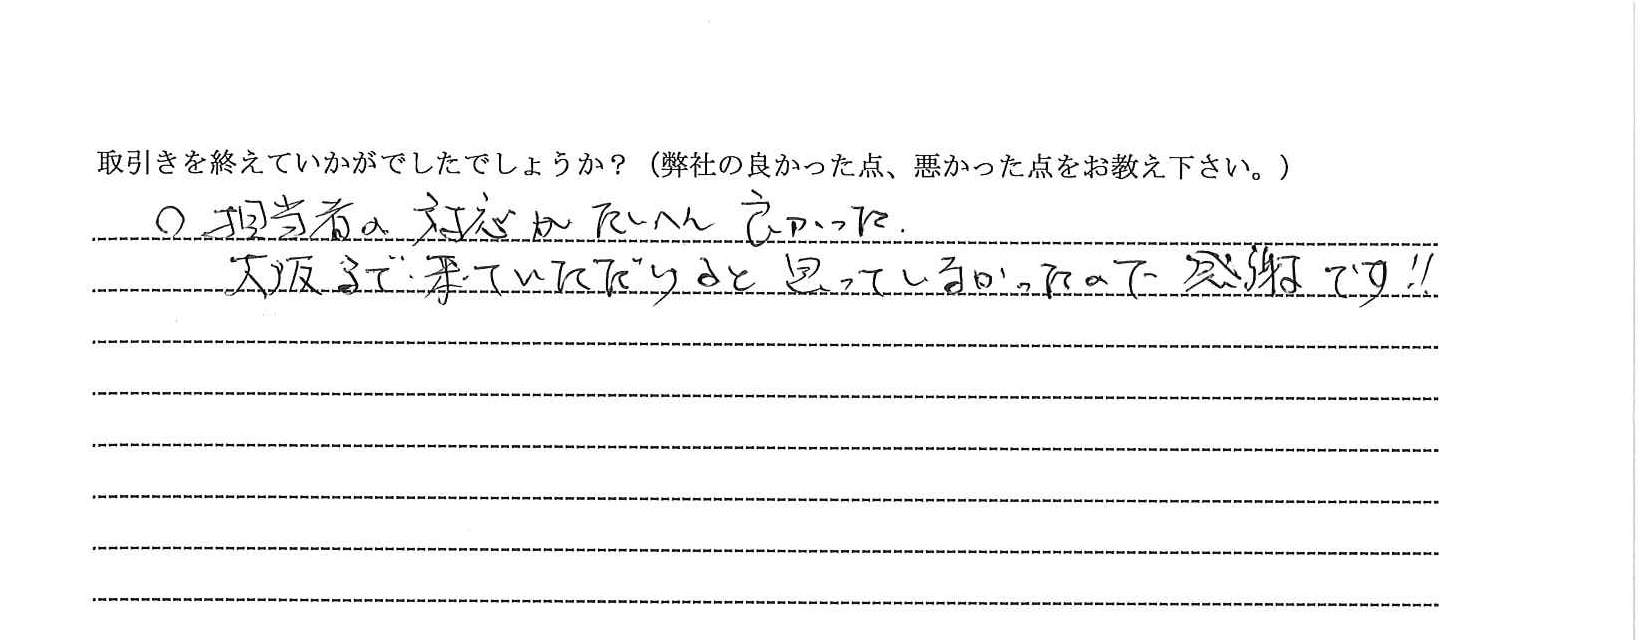 取引きを終えていかがでしたでしょうか？（弊社の良かった点、悪かった点をお教え下さい。）
○ 担当者の対応がたいへん良かった.
大阪まで来ていただけると思っていなかったので感謝です!!